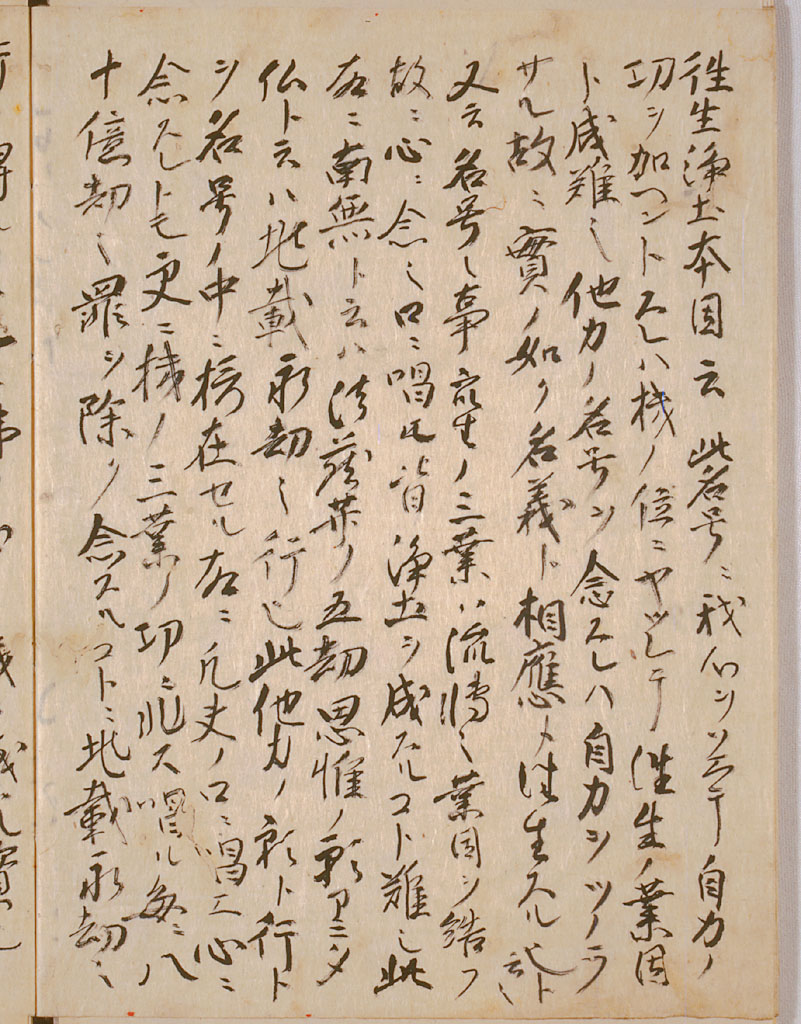 往生浄土本因云 此名号ニ我心ヲソヱテ自力ノ
功ヲ加ヘントスレハ機ノ位ニヤツレテ往生ノ業因
ト成難シ他力ノ名号ヲ念スレハ自力ヲツノラ
サル故ニ實ノ如ク名義ト相應メ往生スル也ト云々
又云名号ノ事衆生ノ三業ハ流轉ノ業因ヲ結フ
故ニ心ニ念シ口ニ唱ルモ皆浄土ヲ成スルコト難シ此
故ニ南無ト云ハ法蔵𦬇ノ五劫思惟ノ願アミタ
仏ト云ハ兆載永劫ノ行也此他力ノ願ト行ト
ヲ名号ノ中ニ摂在セル故ニ凡夫ノ口ニ唱エ心ニ
念スレトモ更ニ機ノ三業ノ功ニ非ス唱ル毎ニ八
十億劫ノ罪ヲ除ク念スルコトニ兆載永劫ノ